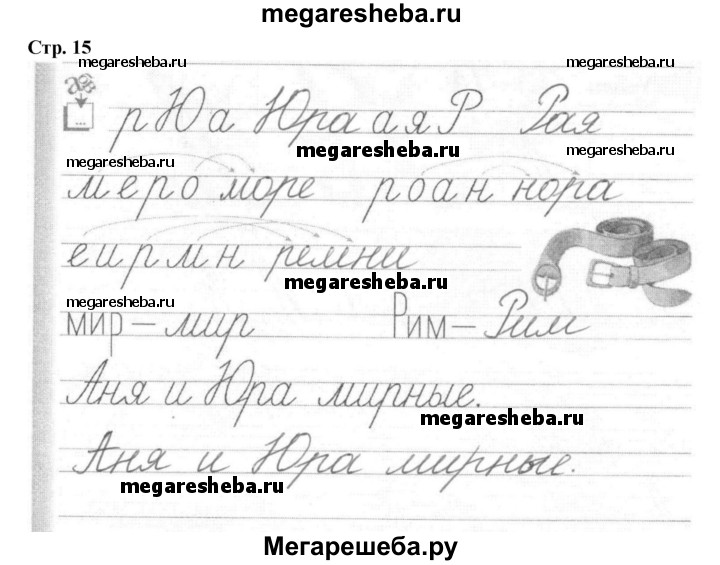 megaresheba.ru
Стр. 15
megaresheba.ru megaresheba.ru
...
р Ю а Юра а я Р Рая
megaresheba.ru megaresheba.ru
megaresheba.ru
м е р о море р о а н нора
е и р м н ремни
megaresheba.ru
megaresheba.ru megaresheba.ru
мир – мир Рим – Рим
Аня и Юра мирные.
megaresheba.ru
Аня и Юра мирные.
megaresheba.ru
Мегарешеба.ру